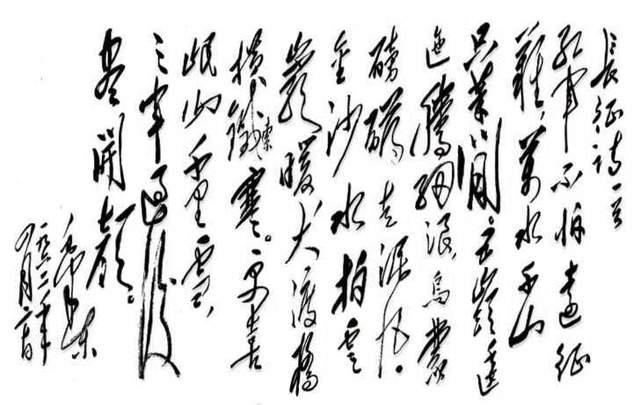 長征詩一首
紅軍不怕遠征
難，萬水千山
只等閒。五嶺逶
迤騰細浪，烏蒙
磅礴走泥丸。
金沙水拍雲
巖暖，大渡橋
橫鐵索寒。更喜
岷山千里雪，
三軍過後
盡開顏。
毛澤東
一九六二年
四月二十日